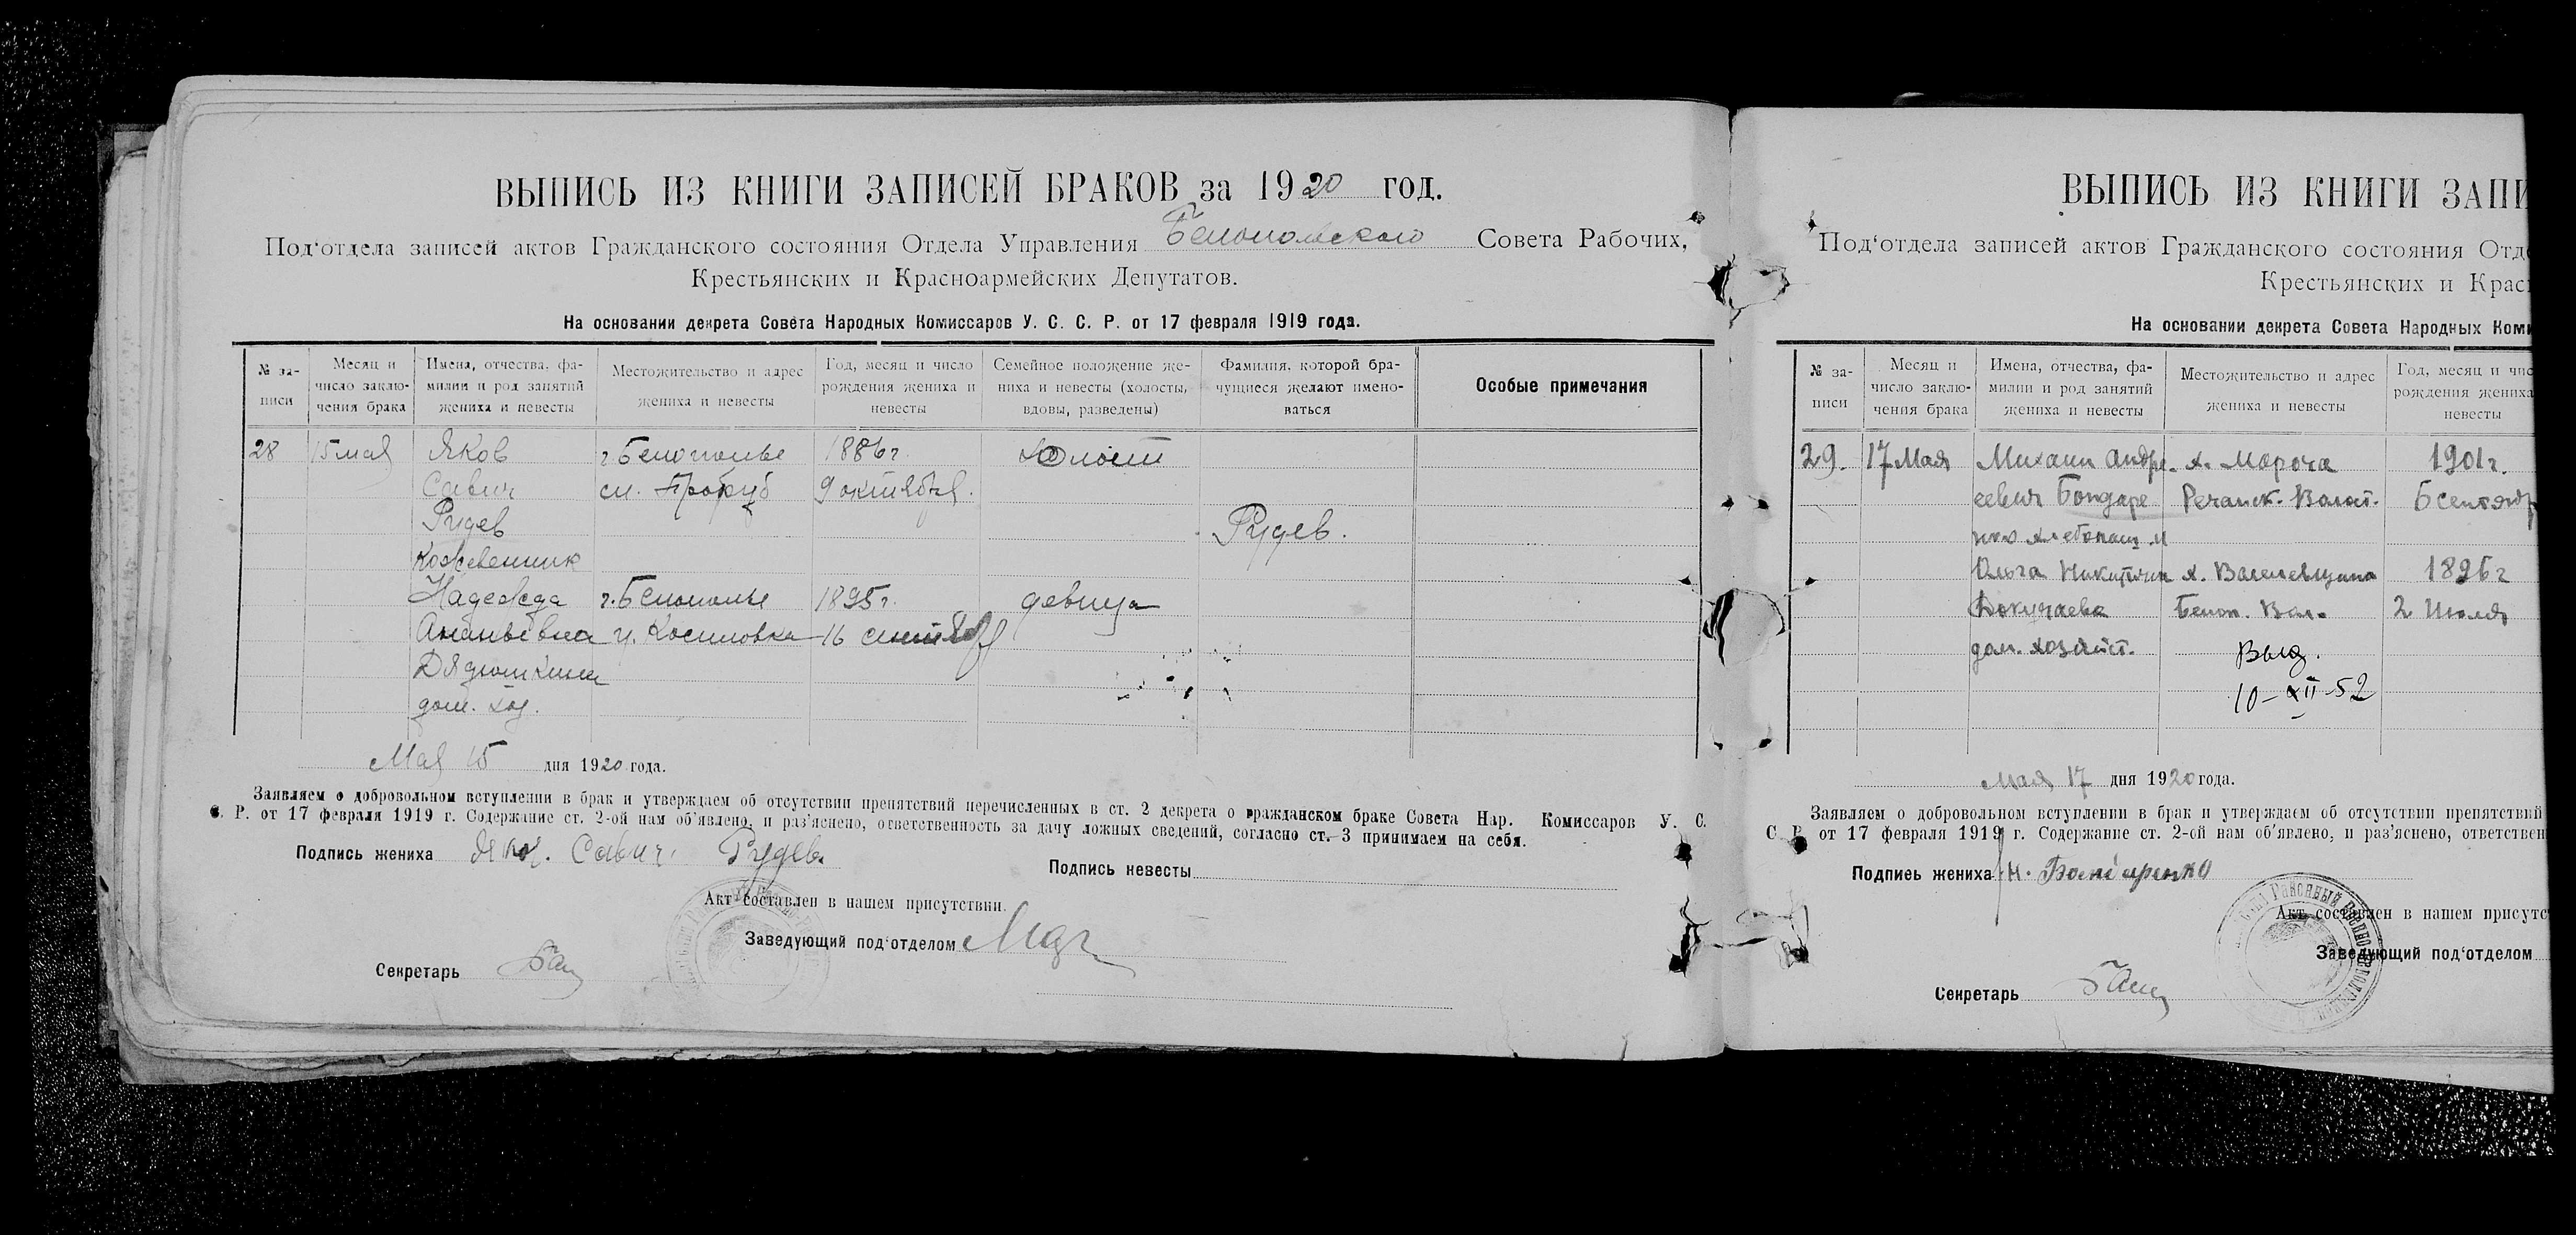 ВЫПИСЬ ИЗ КНИГИ ЗАПИСЕЙ БРАКОВ за 1920 год.
Под'отдела записей актов Гражданского состояния Отдела Управления Белопольского Совета Рабочих,
Крестьянских и Красноармейских Депутатов.
На основании декрета Совета Народных Комиссаров У. С. С. Р. от 17 февраля 1919 года.
№ за-
писи
Месяц и
число заклю-
чения брака
Имена, отчества, фа-
милии и род занятий
жениха и невесты
Местожительство и адрес
жениха и невесты
Год, месяц и число
рождения жениха и
невесты
Семейное положение же-
ниха и невесты (холосты,
вдовы, разведены)
Фамилия, которой бра-
чущиеся желают имено-
ваться
Особые примечания
28 15 мая Яков г. Белополье 1886 г. Холост
Савич сл. 9 октября.
Рудев Рудев.
Кожевенник
Надежда г. Белополье 1895 г. девица
Ананьевна 16
дом. хоз.
Мая 15 дня 1920 года.
Заявляем о добровольном вступлении в брак и утверждаем об отсутствии препятствий перечисленных в ст. 2 декрета о гражданском браке Совета Нар. Комиссаров У. С.
С. Р. от 17 февраля 1919 г. Содержание ст. 2-ой нам об'явлено, и раз'яснено, ответственность за дачу ложных сведений, согласно ст. 3 принимаем на себя.
Подпись жениха Яков. Савич. Рудев.
Подпись невесты
Акт составлен в нашем присутствии.
Заведующий под'отделом
Секретарь
ВЫПИСЬ ИЗ КНИГИ ЗАПИ
Под'отдела записей актов Гражданского состояния Отд
Крестьянских и Крас
На основании декрета Совета Народных Коми
№ за-
писи
Месяц и
число заклю-
чения брака
Имена, отчества, фа-
милии и род занятий
жениха и невесты
Местожительство и адрес
жениха и невесты
Год, месяц и чис
рождения жениха
невесты
29. 17 Мая Михаил Андре- х. Мороча 1901 г.
евич Бондаре Речанск. Волост. 6 сентябр
нко хлебопаш
Ольга Никитична х. 1896 г
Докучаева Белоп. Вол. 2 Июля
дом. хозяйст.
Выд.
10-XII-52
Мая 17 дня 1920 года.
Заявляем о добровольном вступлении в брак и утверждаем об отсутствии препятствий
С. Р. от 17 февраля 1919 г. Содержание ст. 2-ой нам об'явлено, и раз'яснено, ответствен
Подпись жениха Бондаренко
Акт составлен в нашем присутс
Заведующий под'отделом
Секретарь